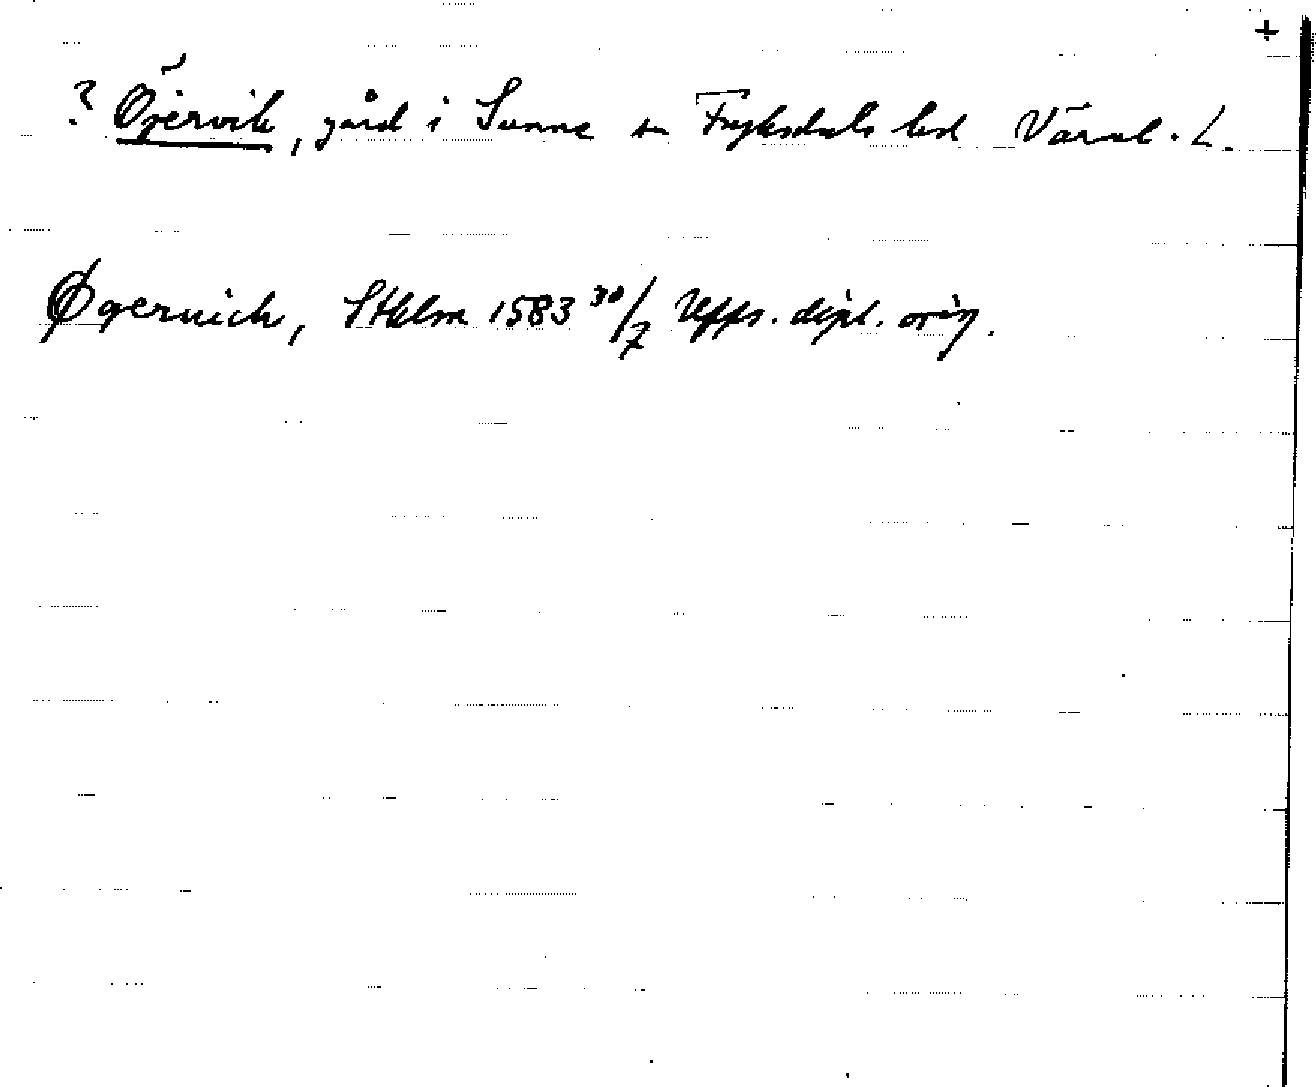 +
? Öjervik, gård i Sunne sn Fryksdals hd Värml. L.
Øgeruich, Sthlm 1583 30/7 Uffs. dipl. orig.